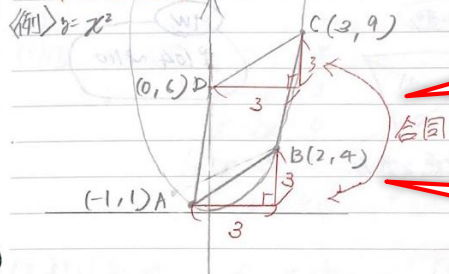 〈例〉y=x²
C(3,9)
(0,6)D
3
3
合同
B(2,4)
3
(-1,1)A
3